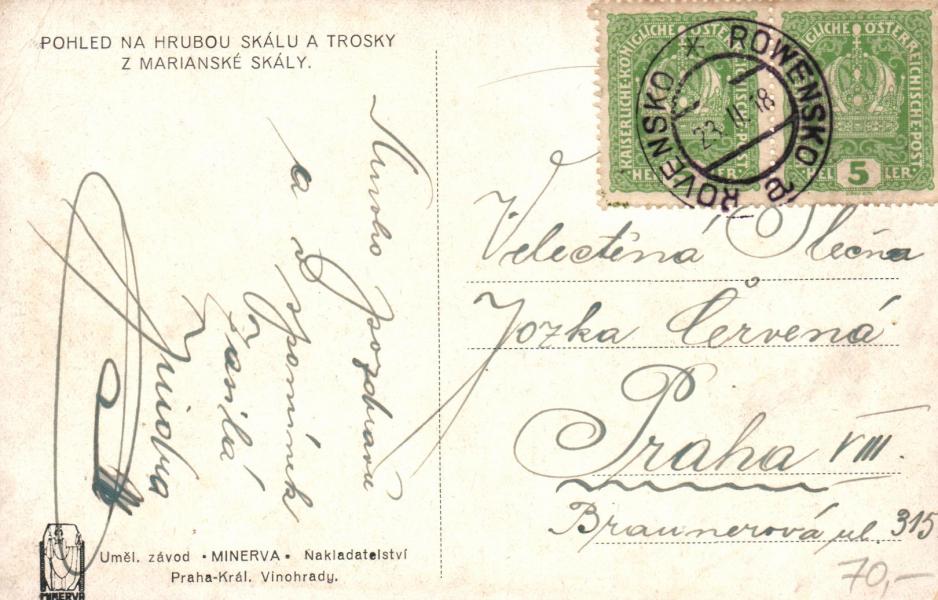 POHLED NA HRUBOU SKÁLU A TROSKY
Z MARIANSKÉ SKÁLY.
Mnoho pozdravů
a vzpomínek
zasílá
KAISERLICHE·KÖNIGLICHE ÖSTERREICHISCHE·POST
HELLER
KAISERLICHE·KÖNIGLICHE ÖSTERREICHISCHE·POST
HEL 5 LER
ROVENSKO * ROWENSKO
23. II. 18
Velectěná Slečna
Jozka Červená
Praha VIII.
Braunerová ul. 315
70,-
Uměl. závod • MINERVA • Nakladatelství
Praha-Král. Vinohrady.
MINERVA